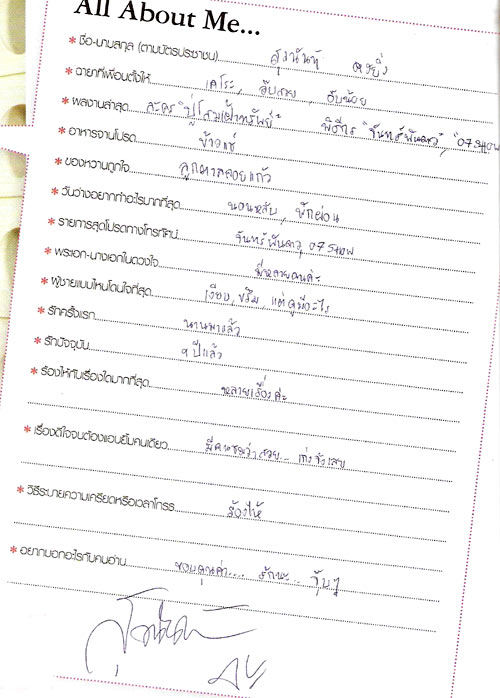 All About Me...
* ชื่อ-นามสกุล (ตามบัตรประชาชน) สุวนันท์ คงยิ่ง
* ฉายาที่เพื่อนตั้งให้ เคโระ, น้อย
* ผลงานล่าสุด ละคร "ปู่โสมเฝ้าทรัพย์" พิธีกร "จันทร์พันดาว", "07 SHOW
* อาหารจานโปรด ข้าวแช่
* ของหวานถูกใจ ลูกตาลลอยแก้ว
* วันว่างอยากทำอะไรมากที่สุด นอนหลับ, พักผ่อน
* รายการสุดโปรดทางโทรทัศน์ จันทร์พันดาว, 07 SHOW
* พระเอก-นางเอกในดวงใจ มีหลายคนค่ะ
* ผู้ชายแบบไหนโดนใจที่สุด เงียบ, ขรึม, แต่ดูมีอะไร
* รักครั้งแรก นานมาแล้ว
* รักปัจจุบัน ๆ ปีแล้ว
* ร้องไห้กับเรื่องใดมากที่สุด หลายเรื่องค่ะ
* เรื่องดีใจจนต้องแอบยิ้มคนเดียว มีคนชมว่าสวย... เก่งจังเลย
* วิธีระบายความเครียดหรือเวลาโกรธ ร้องไห้
* อยากบอกอะไรกับคนอ่าน ขอบคุณค่า.... รักนะ.. จุ๊บๆ